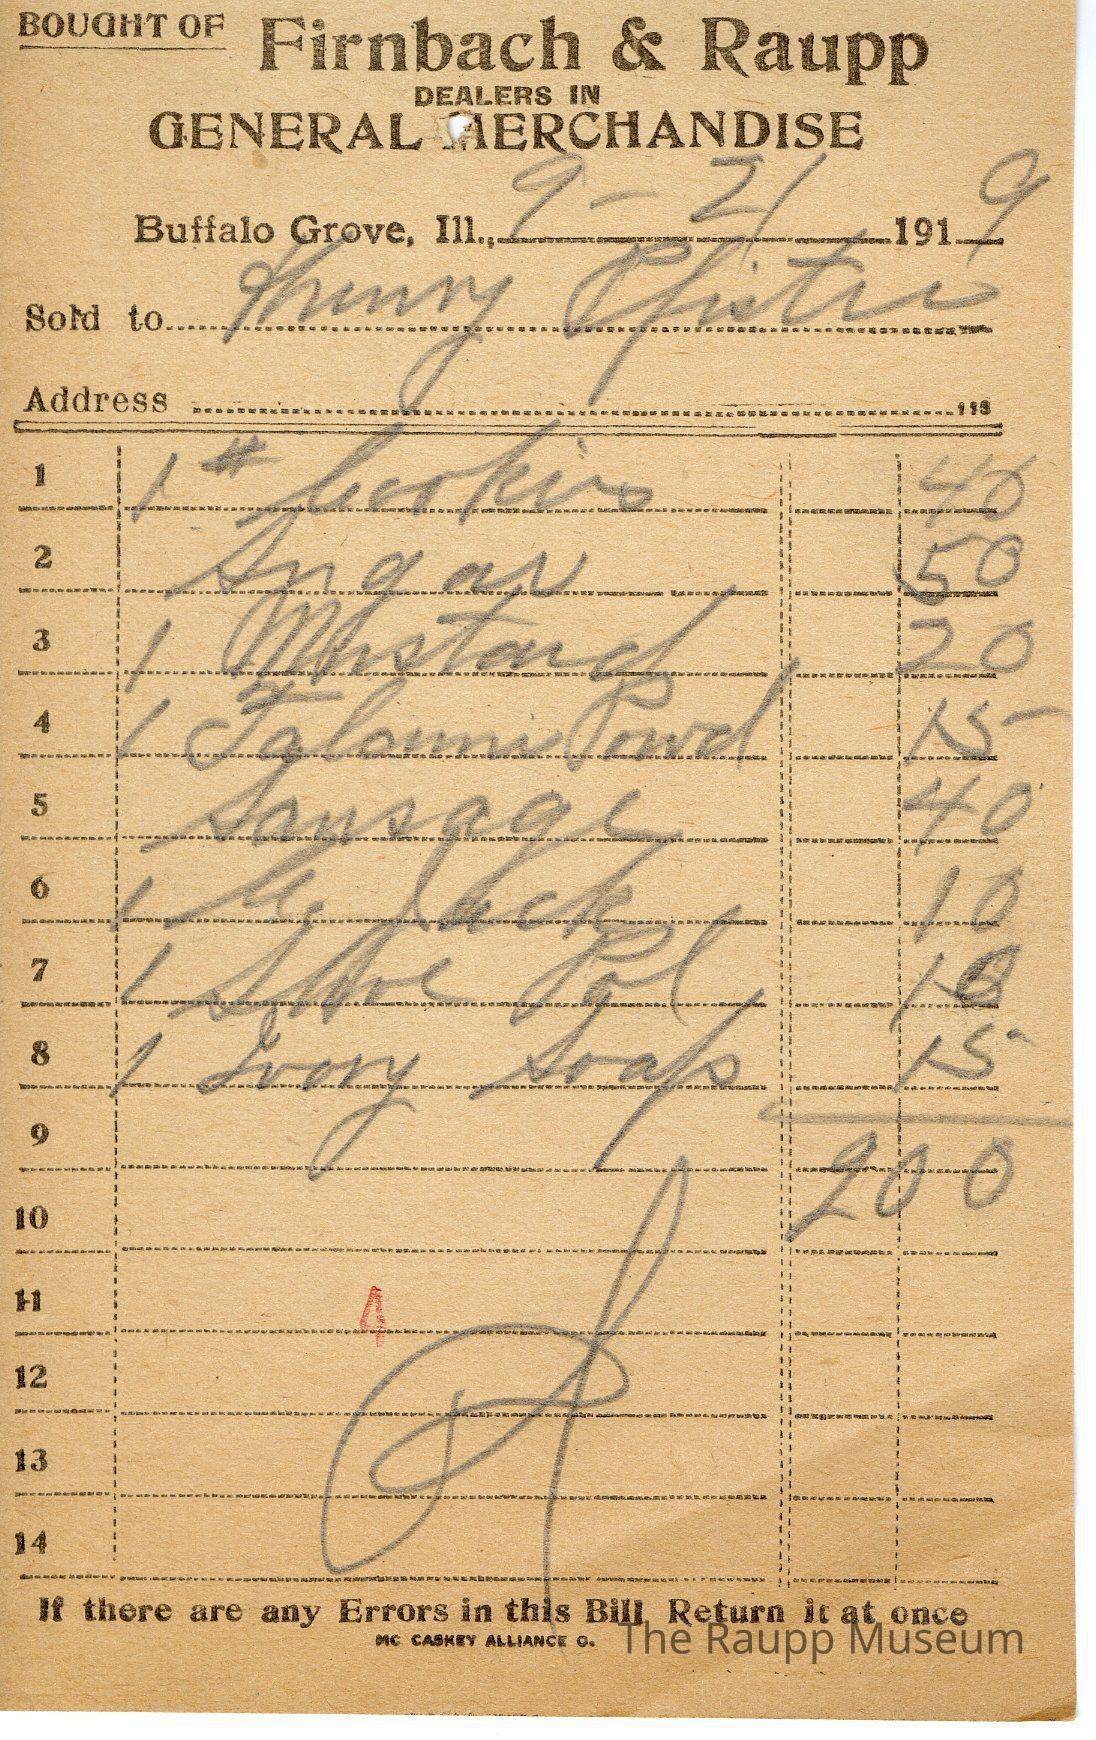 BOUGHT OF Firnbach & Raupp
DEALERS IN
GENERAL MERCHANDISE
Buffalo Grove, Ill., 9-21 1919
Sold to Henry
Address 118
1 1 # Cookies 40
2 Sugar 50
3 1 Mustard 20
4 1 Powd 15
5 Sausage 40
6 1 Jack 10
7 1 Stove Pol 10
8 1 Ivory Soap 15
9 200
10
11 4
12
13
14
If there are any Errors in this Bill Return it at once
MC CASKEY ALLIANCE O.
The Raupp Museum